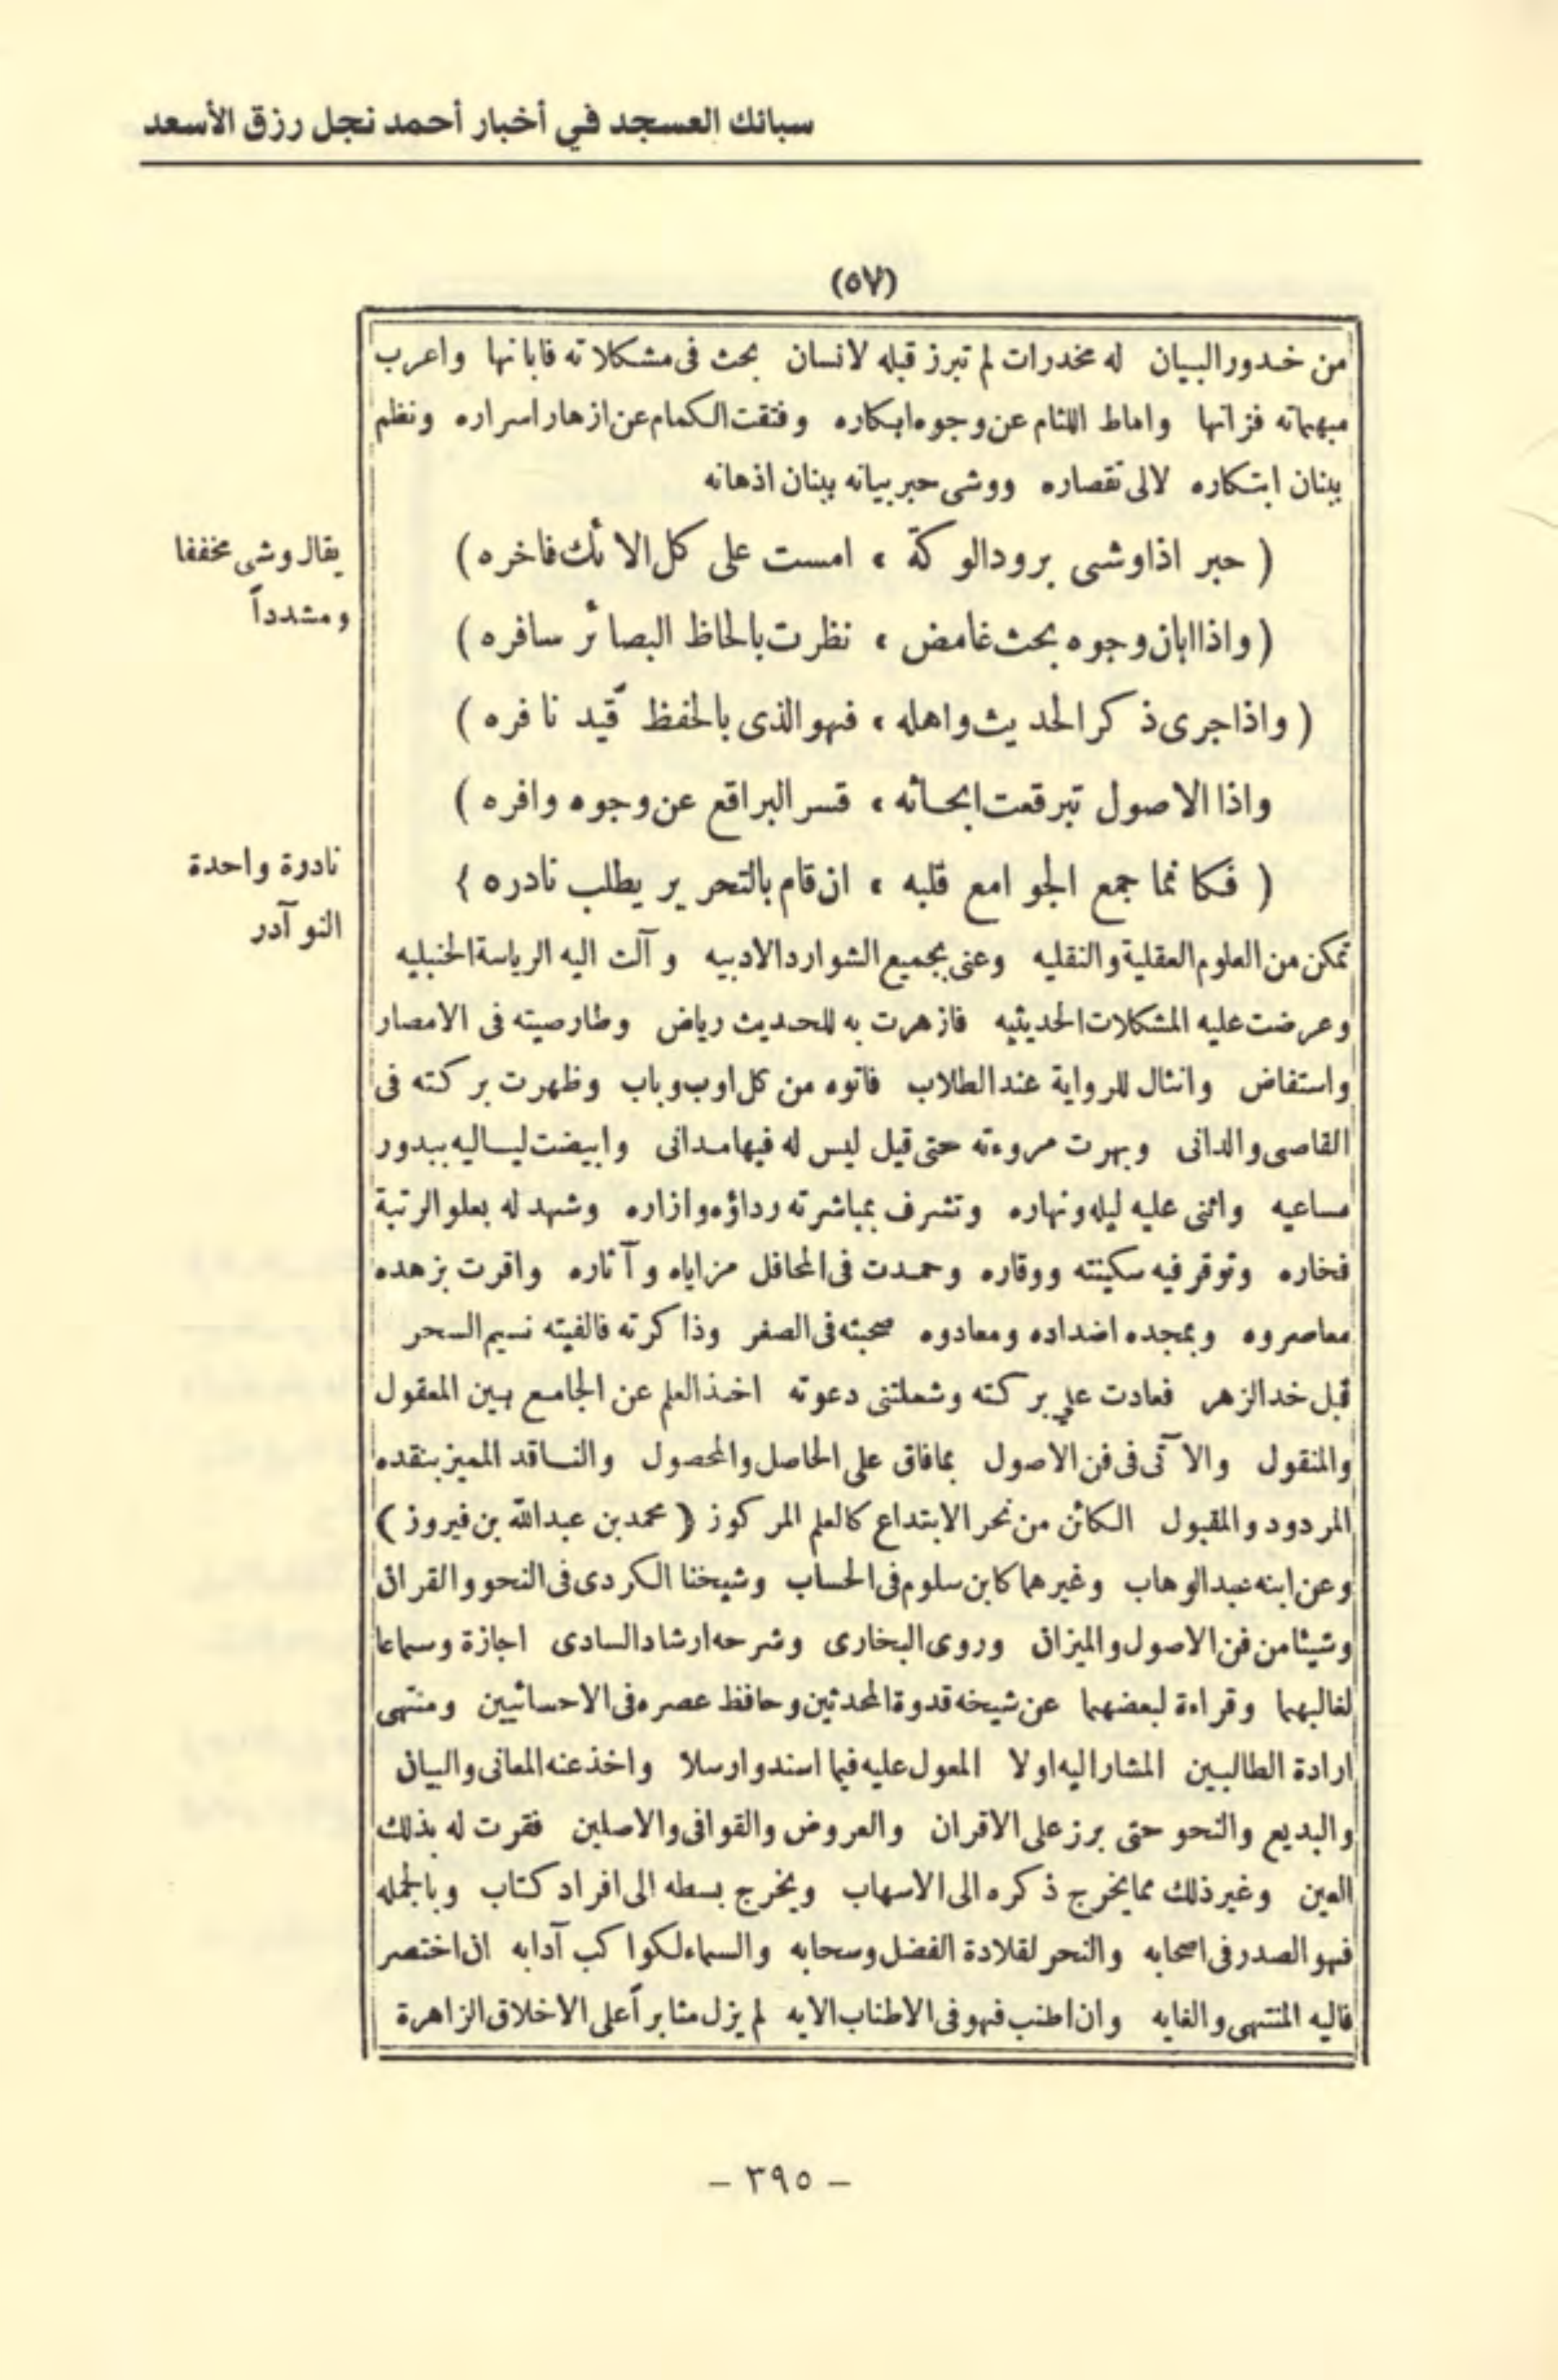 سبائك العسجد في أخبار أحمد نجل رزق الأسعد
(٥٧)
من خدور البيان له مخدرات لم تبرز قبله لانسان بحث فى مشكلاته فابانها واعرب
مبهماته فزانها واماط اللثام عن وجوه ابكاره وفتقت الكمام عن ازهار اسراره ونظم
ببنان ابتكاره لالى تقصاره ووشى حبر بيانه ببنان اذهانه
( حبر اذا وشى برود الوكة ، امست على كل الائك فاخره )
يقال وشى مخففا
ومشدداً
( واذا ابان وجوه بحث غامض ، نظرت بالحاظ البصائر سافره )
( واذا جرى ذكر الحديث واهله ، فهو الذى بالحفظ قيد نافره )
واذا الاصول تبرقعت ابحاثه ، قسر البراقع عن وجوه وافره )
( فكانما جمع الجوامع قلبه ، ان قام بالتحرير يطلب نادره )
نادرة واحدة
النوآدر
تمكن من العلوم العقلية والنقليه وعنى بجميع الشوارد الادبيه وآلت اليه الرياسة الحنبليه
وعرضت عليه المشكلات الحديثيه فازهرت به للحديث رياض وطار صيته فى الامصار
واستفاض وانثال للرواية عند الطلاب فاتوه من كل اوب وباب وظهرت بركته فى
القاصى والدانى وبهرت مروءته حتى قيل ليس له فيها مدانى وابيضت لياليه ببدور
مساعيه واثنى عليه ليله ونهاره وتشرف بمباشرته رداؤه وازاره وشهد له بعلو الرتبة
فخاره وتوقر فيه سكينته ووقاره وحمدت فى المحافل مزاياه وآثاره واقرت بزهده
معاصروه وبمجده اضداده ومعادوه صحبته فى الصغر وذاكرته فالفيته نسيم السحر
قبل خد الزهر فعادت علي بركته وشملتنى دعوته اخذ العلم عن الجامع بين المعقول
والمنقول والآتى فى فن الاصول بمافاق على الحاصل والمحصول والناقد المميز بنقده
المردود والمقبول الكائن من نحر الابتداع كالعلم المركوز ( محمد بن عبدالله بن فيروز )
وعن ابنه عبد الوهاب وغيرهما كابن سلوم فى الحساب وشيخنا الكردى فى النحو والقران
وشيئا من فن الاصول والميزان وروى البخارى وشرحه ارشاد السادى اجازة وسماعا
لغالبهما وقراءة لبعضهما عن شيخه قدوة المحدثين وحافظ عصره فى الاحسائيين ومنتهى
ارادة الطالبين المشار اليه اولا المعول عليه فيما اسند وارسلا واخذ عنه المعانى والبيان
والبديع والنحو حتى برز على الاقران والعروض والقوافى والاصلين فقرت له بذلك
العين وغير ذلك مما يخرج ذكره الى الاسهاب ويخرج بسطه الى افراد كتاب وبالجمله
فهو الصدر فى اصحابه والنحر لقلادة الفضل وسحابه والسماء لكواكب آدابه ان اختصر
فاليه المنتهى والغايه وان اطنب فهو فى الاطناب الايه لم يزل مثابراً على الاخلاق الزاهرة
- ٣٩٥ -